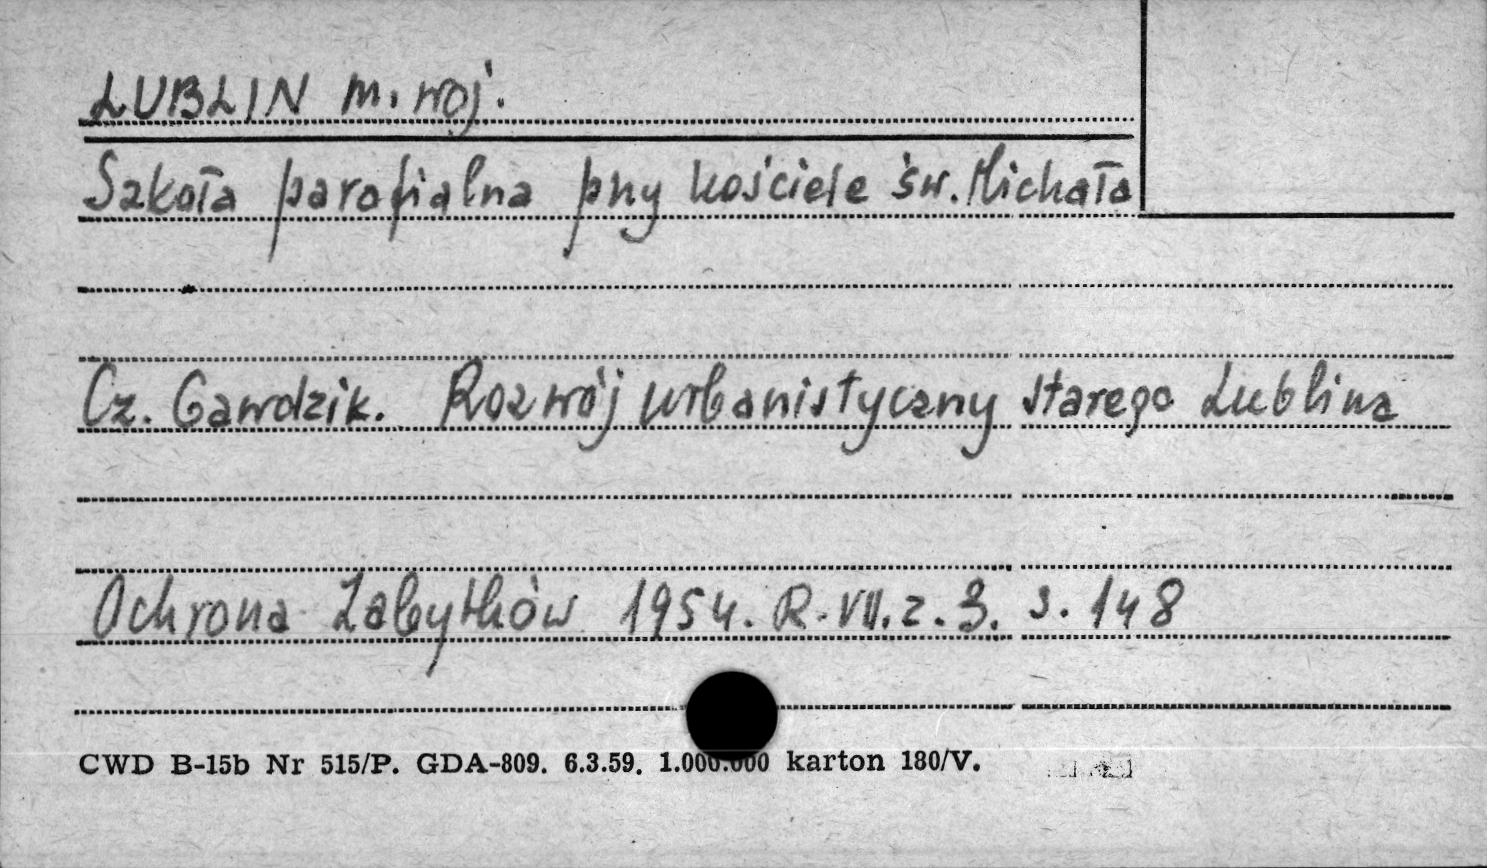 LUBLIN m. woj.
Szkoła parafialna przy kościele św. Michała
Cz. Gawdzik. Rozwój urbanistyczny starego Lublina
Ochrona Zabytków 1954. R. VII. z. 3. s. 148
CWD B-15b Nr 515/P. GDA-809. 6.3.59. 1.000.000 karton 180/V.